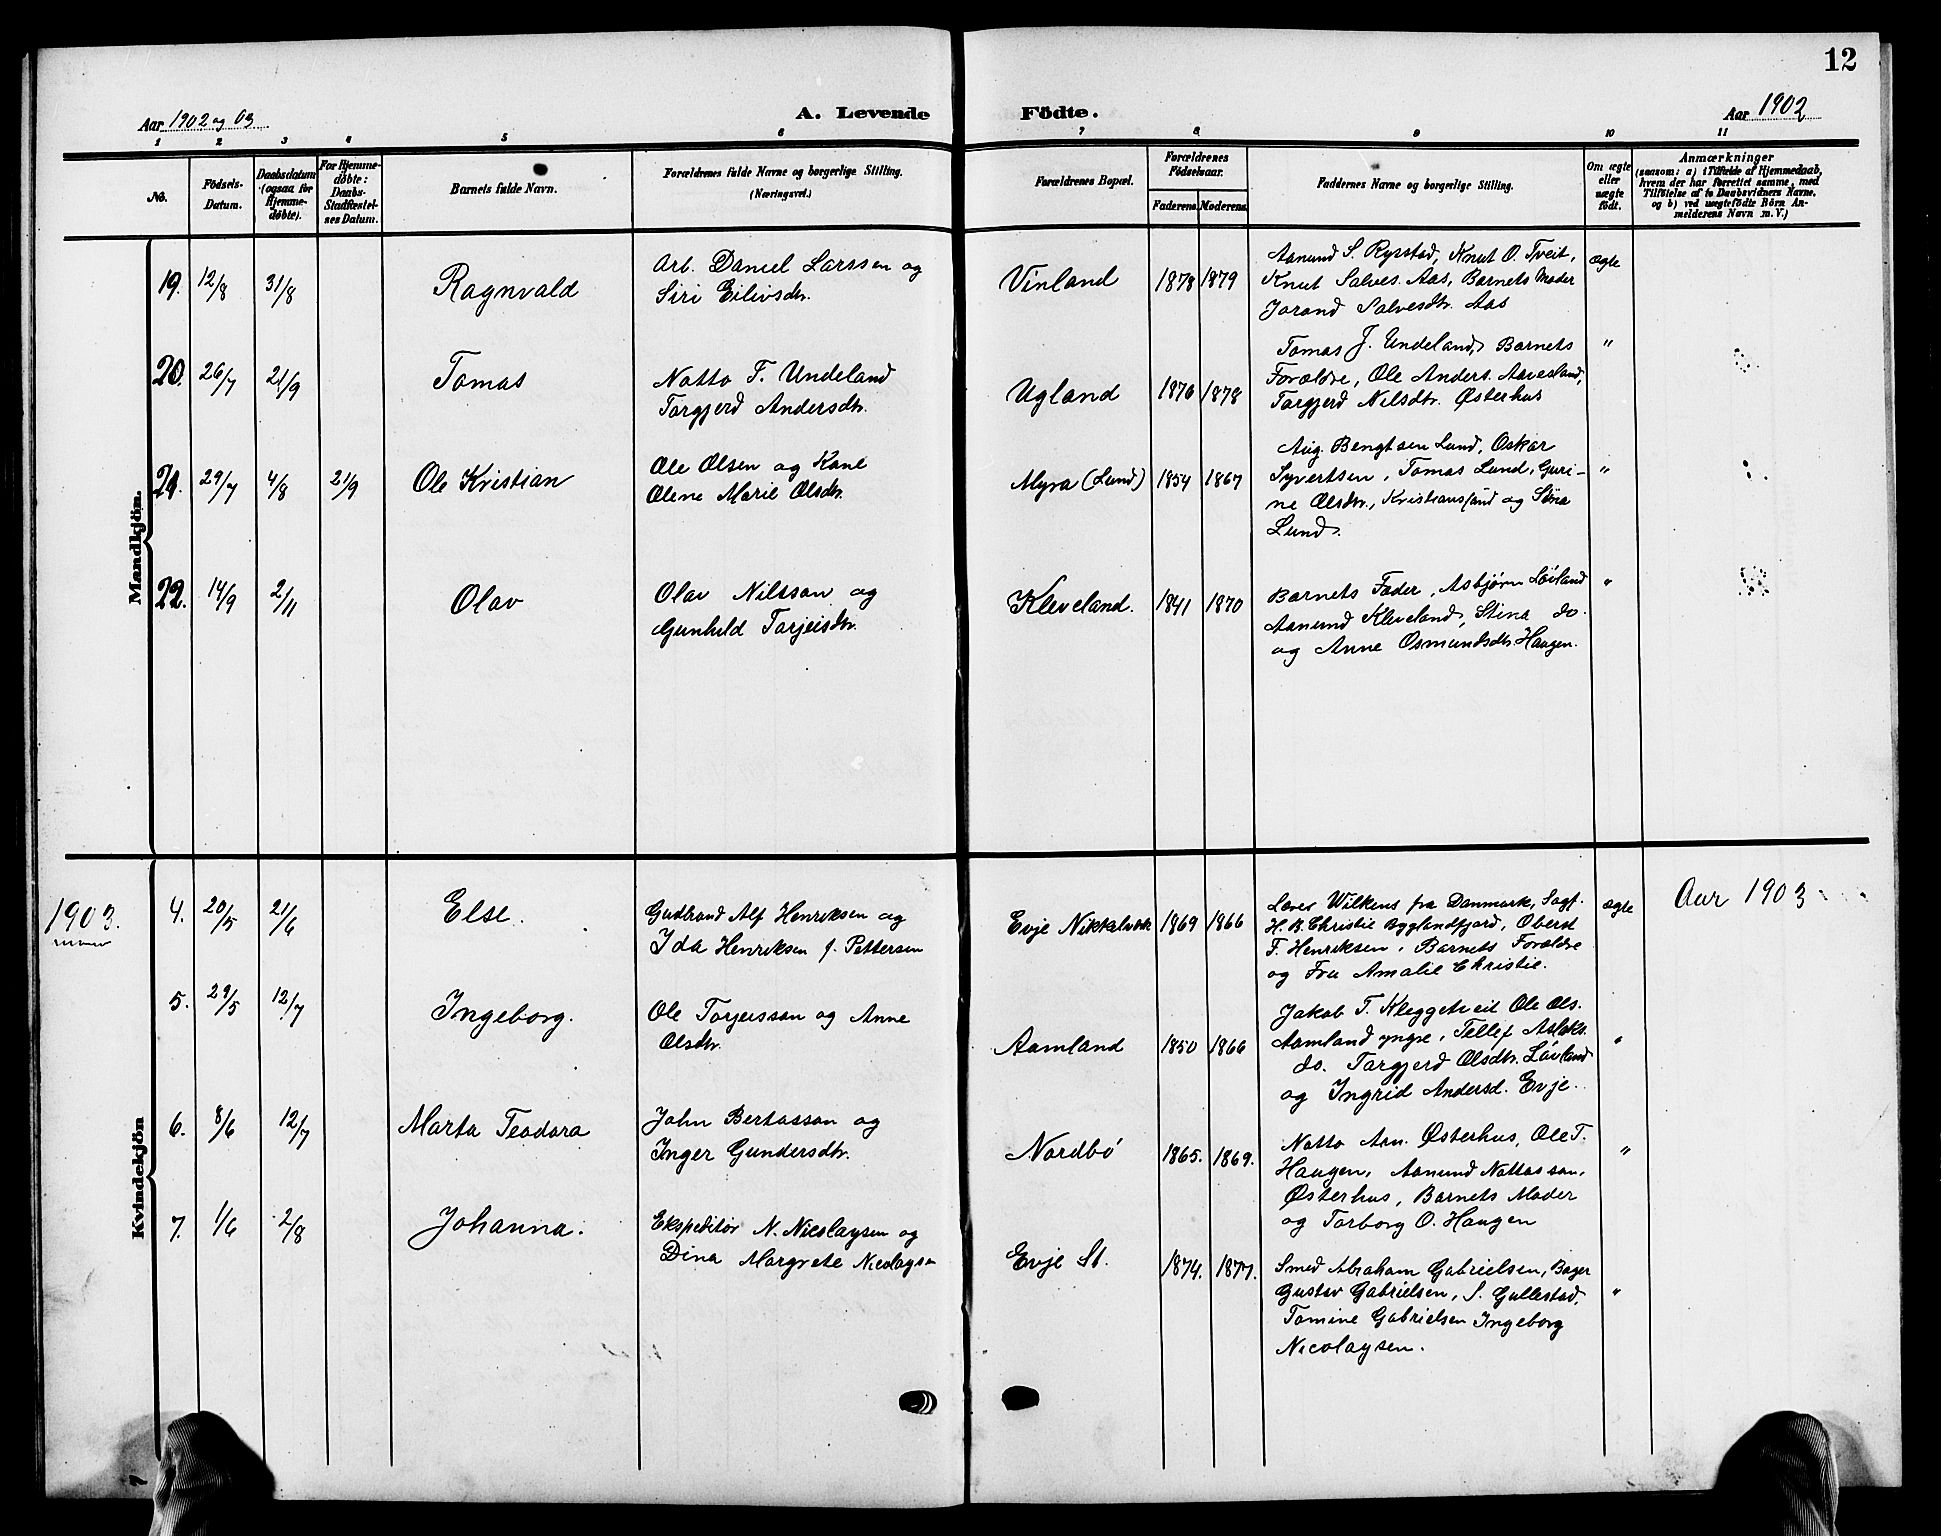 12
Aar 1902 og 03
A. Levende
Födte.
Aar 1902
1 2 3 4 5 6 7 8 9 10 11
No.
Födsels-
Datum.
Daabsdatum
(ogsaa for
Hjemme-
döbte).
For Hjemme-
döbte:
Daabs-
Stadfæstel-
ses Datum.
Barnets fulde Navn.
Forældrenes fulde Navne og borgerlige Stilling.
(Næringsvei.)
Forældrenes Bopæl.
Forældrenes
Födselsaar.
Faderens. Moderens.
Faddernes Navne og borgerlig Stilling.
Om ægte
eller
uægte
födt.
Anmærkninger
(saasom: a) i Tilfælde af Hjemmedaab,
hvem der har forrettet samme, med
Tilföielse af to Daabsvidners Navne.
og b) ved uægtefödte Börn An-
melderens Navn m. V.)
Mandkjön.
19. 12/8 31/8 Ragnvald
Arb. Daniel Larssen og
Siri Eilivsdtr.
Vinland 1878 1879
Aanund S. Rysstad, Knut O. Tveit,
Knut Salves. Aas, Barnets Moder
Jorand Salvesdtr. Aas
ægte
20. 26/7 21/9 Tomas
Notto T. Undeland
Torgjerd Andersdtr.
Ugland 1876 1878
Tomas J. Undeland, Barnets
Forældre, Ole Anders. Aavesland,
Targjerd Nilsdtr. Østerhus
"
21. 29/7 4/8 21/9 Ole Kristian
Ole Olsen og Kone
Olene Marie Olsdtr.
Myra (Lund) 1854 1867
Aug. Bengtsen Lund, Oskar
Syvertsen, Tomas Lund, Guri-
ne Olsdtr., Kristianssand og Stina
Lund.
"
22. 14/9 2/11 Olav
Olav Nilsson og
Gunhild Tarjeisdtr.
Kleveland. 1841 1870
Barnets Fader, Asbjørn Løiland
Aanund Kleveland, Stina do.
og Anne Osmundsdtr. Haugen.
"
1903.
Kvindekjön
4. 20/5 21/6 Else.
Gudbrand Alf Henriksen og
Ida Henriksen f. Pettersen
Evje Nikkelverk 1869 1866
Læser Wilkens fra Danmark, Sagf.
H. B. Christie Byglandfjord, Oberst
F. Henriksen, Barnets Forældre
og Fru Amalie Christie.
ægte
Aar 1903
5. 29/5 12/7 Ingeborg.
Ole Torjussson og Anne
Olsdtr.
Aamland 1850 1866
Jakob T. Kleggetveit Ole Ols.
Aamland yngre, Tellef Aslaks.
do. Targjerd Olsdtr. Løvland
og Ingrid Andersd. Evje.
"
6. 8/6 12/7 Marta Teodora
John Bertosson og
Inger Gundersdtr.
Nordbø 1865. 1869.
Notto Aan. Østerhus, Ole T.
Haugen, Aanund Nottosson,
Østerhus, Barnets Moder
og Torborg O. Haugen
"
7. 1/6 2/8 Johanna.
Ekspeditør N. Nicolaysen og
Dina Margrete Nicolaysen
Evje St. 1874. 1877.
Smed Abraham Gabrielsen, Bager
Gustav Gabrielsen, S. Gullestad,
Tomine Gabrielsen Ingeborg
Nicolaysen.
"